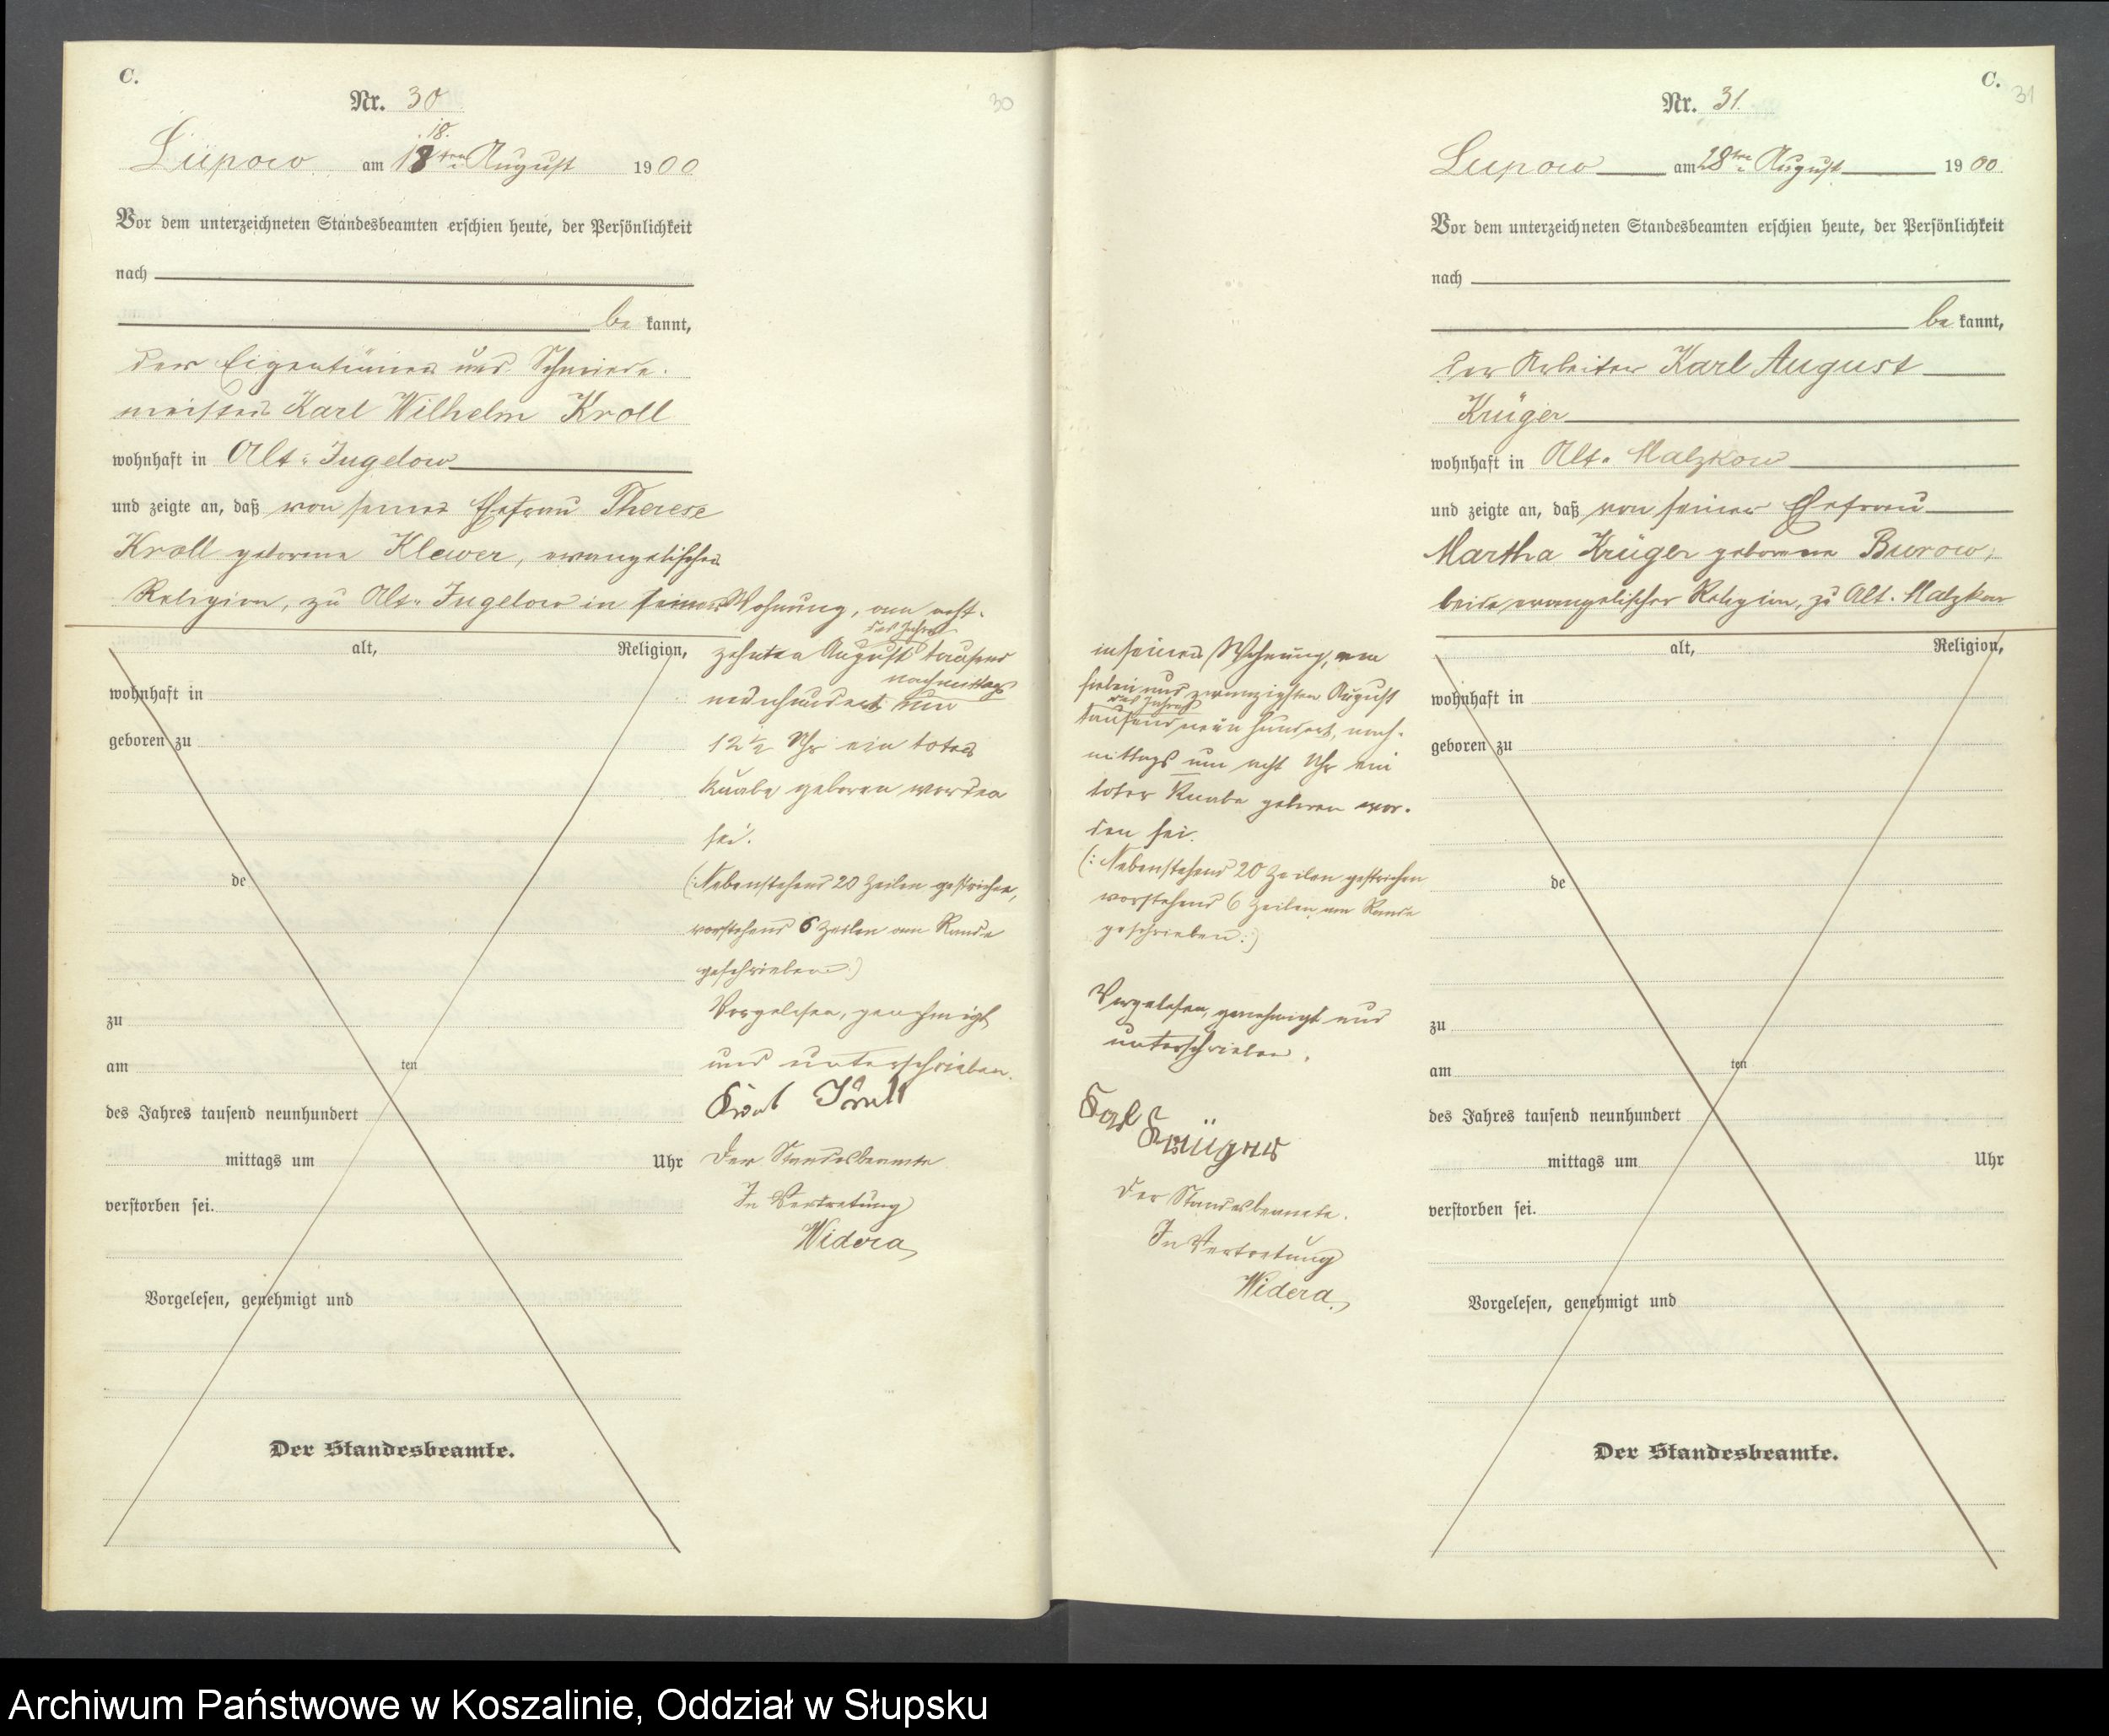 C.
Nr. 30
30
18.
Lupow am 18ten August 1900
Vor dem unterzeichneten Standesbeamten erschien heute, der Persönlichkeit
nach
be kannt,
der Eigentümer und Schmiede-
meister Karl Wilhelm Kroll
wohnhaft in Alt-Jugelow
und zeigte an, daß von seiner Ehefrau Therese
Kroll geborene Klewer, evangelischer
Religion, zu Alt-Jugelow in seiner Wohnung, am acht-
des Jahres
zehnten August tausend
nachmittags
neunhundert um
12 ½ Uhr ein toter
Knabe geboren worden
sei.
(: Nebenstehend 20 Zeilen gestrichen,
vorstehend 6 Zeilen am Rande
geschrieben :)
Vorgelesen, genehmigt
und unterschrieben.
Kroll
Der Standesbeamte
In Vertretung
Widera
alt, Religion,
wohnhaft in
geboren zu
de
zu
am ten
des Jahres tausend neunhundert
mittags um Uhr
verstorben sei.
Vorgelesen, genehmigt und
Der Standesbeamte.
C.
31
Nr. 31.
Lupow am 28ten August 1900.
Vor dem unterzeichneten Standesbeamten erschien heute, der Persönlichkeit
nach
be kannt,
der Arbeiter Karl August
Krüger
wohnhaft in Alt-Malzkow
und zeigte an, daß von seiner Ehefrau
Martha Krüger geborene Burow,
beide evangelischer Religion, zu Alt-Malzkow
in seiner Wohnung, am
sieben und zwanzigsten August
des Jahres
tausend neun hundert, nach-
mittags um acht Uhr ein
toter Knabe geboren wor-
den sei.
(: Nebenstehend 20 Zeilen gestrichen
vorstehend 6 Zeilen am Rande
geschrieben :)
Vorgelesen, genehmigt und
unterschrieben.
Karl
Krüger
Der Standesbeamte.
In Vertretung
Widera
alt, Religion,
wohnhaft in
geboren zu
de
zu
am ten
des Jahres tausend neunhundert
mittags um Uhr
verstorben sei.
Vorgelesen, genehmigt und
Der Standesbeamte.
Archiwum Państwowe w Koszalinie, Oddział w Słupsku